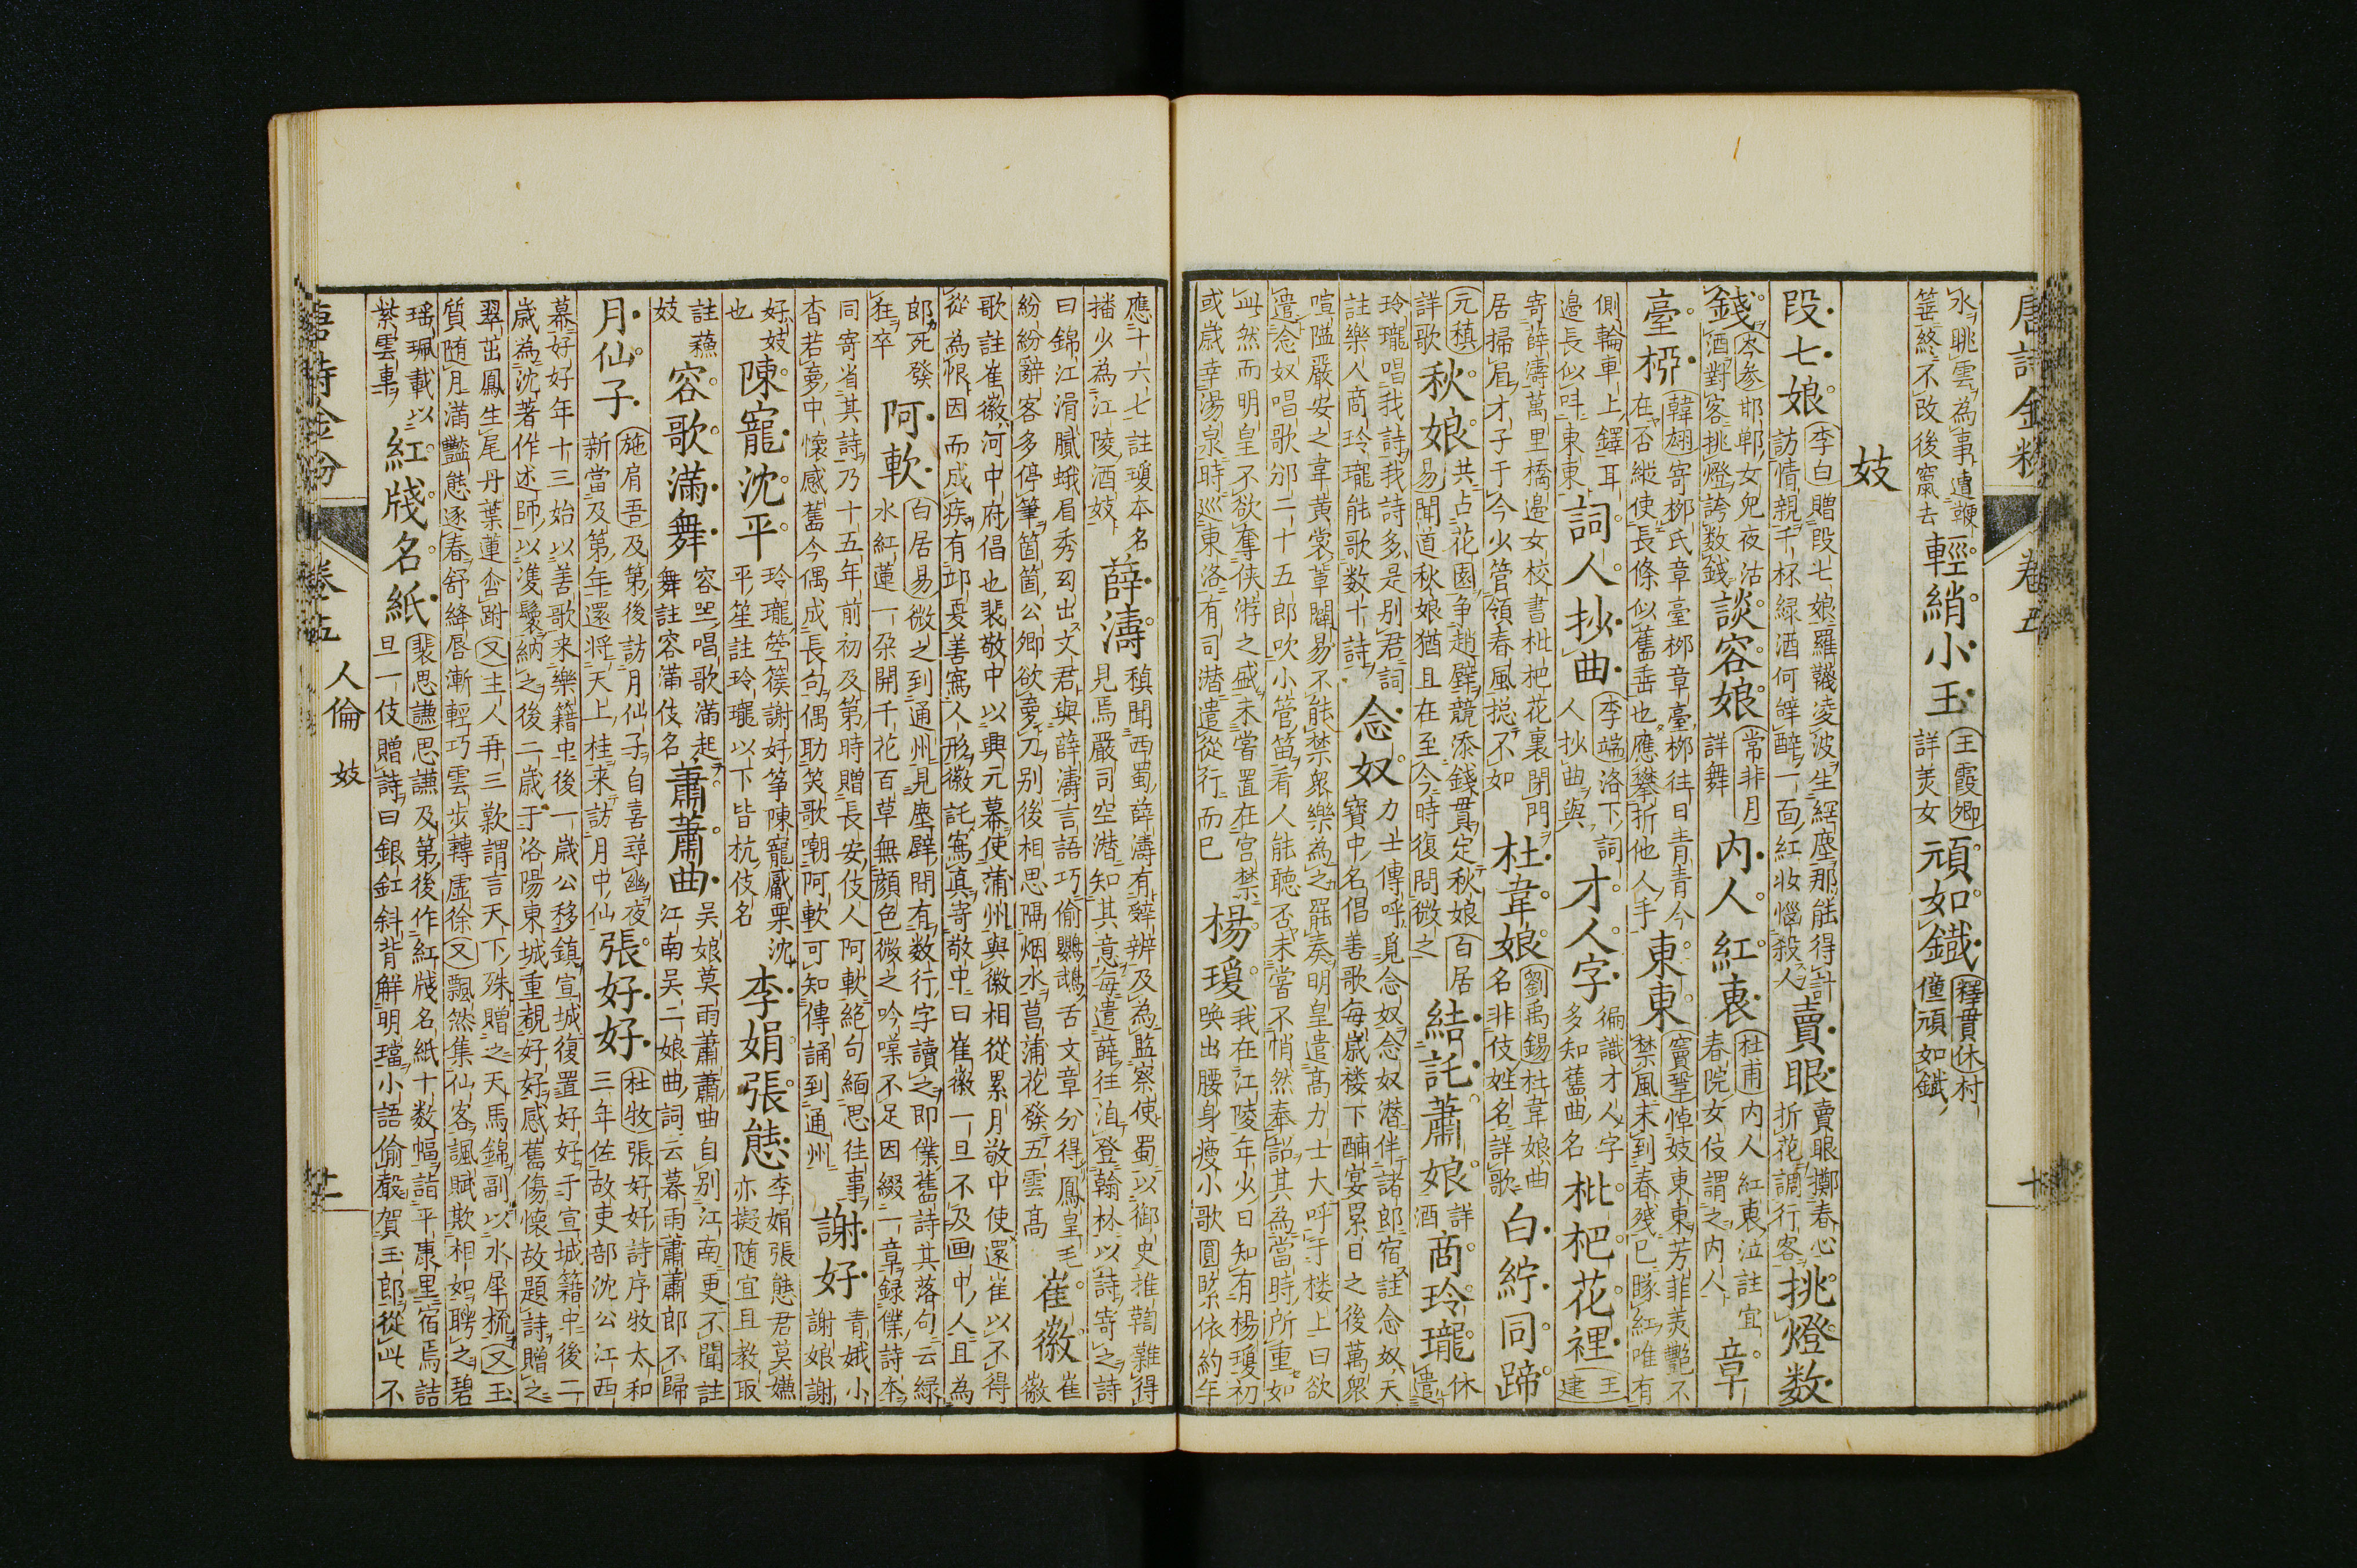 唐詩金粉 卷五 十
水眺雲為事遭鞭
箠終不改後竄去
輕綃小玉
王霞卿
詳美女
頑如鐵
釋貫休村
僮頑如鐵
妓
段七娘
李白贈段七娘羅韈凌波生網塵那能得計
訪情親千杯緑酒何辞醉一面紅妝惱殺人
賣眼
賣眼擲春心
折花調行客
挑燈数
錢
岑参邯鄲女兒夜沽
酒對客挑燈誇数錢
談容娘
常非月
詳舞
内人紅衷
杜甫内人紅衷泣註宜
春院女伎謂之内人
章
臺柳
韓翃寄柳氏章臺柳章臺柳往日青青今
在否縱使長條似舊垂也應攀折他人手
東東
竇鞏悼妓東東芳菲美艷不
禁風未到春殘已㖂紅唯有
側輪車上鐸耳
邊長似呌東東
詞人抄曲
李端洛下詞
人抄曲與
才人字
徧識才人字
多知舊曲名
枇杷花裡
王
建
寄薛濤萬里橋邊女校書枇杷花裏閉門
居掃眉才子于今少管領春風揔不如
杜韋娘
劉禹錫杜韋娘曲
名非伎姓名詳歌
白紵同蹄
元稹
詳歌
秋娘
共占花園争趙璧競添錢貫定秋娘百居
易聞道秋娘猶且在至今時復問微之
結託蕭娘
詳
酒
商玲瓏
休
遣
玲瓏唱我詩我詩多是别君詞
註樂人商玲瓏能歌数十詩
念奴
力士傳呼覓念奴念奴潜伴諸郎宿註念奴天
寶中名倡善歌毎歲楼下酺宴累日之後萬衆
喧隘嚴安之韋黄裳輩闢易不能禁衆樂為之罷奏明皇遣髙力士大呼于楼上曰欲
遣念奴唱歌邠二十五郎吹小管笛看人能聽否未嘗不悄然奉詔其為當時所重如
此然而明皇不欲奪俠游之盛未嘗置在宮禁
或歳幸湯泉時巡東洛有司潜遣從行而已
楊瓊
我在江陵年少日知有楊瓊初
唤出腰身瘦小歌圓緊依約年
應十六七註瓊本名
播少為江陵酒妓
薛濤
稹聞西蜀薛濤有辭辨及為監察使蜀以御史推鞫難得
見焉嚴司空潜知其意毎遣薛往洎登翰林以詩寄之詩
曰錦江滑膩蛾眉秀幻出文君與薛濤言語巧偷鸚鵡舌文章分得鳳皇毛
紛紛辭客多停筆箇箇公卿欲夢刀别後相思隔烟水菖蒲花發五雲髙
崔徽
崔
徽
歌註崔徽河中府倡也裴敬中以興元幕使蒲州與徽相從累月敬中使還崔以不得
從為恨因而成疾有邱夏善寫人形徽託寫真寄敬中曰崔徽一旦不及画中人且為
郎死發
狂卒
阿軟
白居易微之到通州見塵壁間有数行字讀之即僕舊詩其落句云緑
水紅蓮一朶開千花百草無顔色微之吟嘆不足因綴一章録僕詩本
同寄省其詩乃十五年前初及第時贈長安伎人阿軟絶句緬思往事
杳若夢中懐感舊今偶成長句偶助笑歌嘲阿軟可知傳誦到通州
謝好
青娥小
謝娘謝
好妓
也
陳寵沈平
玲瓏箜篌謝好筝陳寵觱栗沈
平笙註玲瓏以下皆杭伎名
李娟張態
李娟張態君莫嫌
亦擬随宜且教取
註蘓
妓
容歌滿舞
容坐唱歌滿起
舞註容滿伎名
蕭蕭曲
吴娘莫雨蕭蕭曲自别江南更不聞註
江南吴二娘曲詞云暮雨蕭蕭郎不歸
月仙子
施肩吾及第後訪月仙子自喜尋幽夜
新當及第年還将天上桂来訪月中仙
張好好
杜牧張好好詩序牧太和
三年佐故吏部沈公江西
幕好好年十三始以善歌来樂籍中後一歳公移鎮宣城復置好好于宣城籍中後二
歳為沈著作述師以雙鬟納之後二歳于洛陽東城重覩好好感舊傷懐故題詩贈之
翠茁鳳生尾丹葉蓮含跗又主人再三歎謂言天下殊贈之天馬錦副以水犀梳又玉
質随月滿豔態逐春舒絳唇漸輕巧雲歩轉虚徐又飄然集仙客諷賦欺相如聘之碧
瑶珮載以
紫雲車
紅牋名紙
裴思謙思謙及第後作紅牋名紙十数幅詣平康里宿焉詰
旦一伎贈詩曰銀釭斜背解明璫小語偷聲賀玉郎從此不
唐詩金粉 卷五 人倫 妓 十一